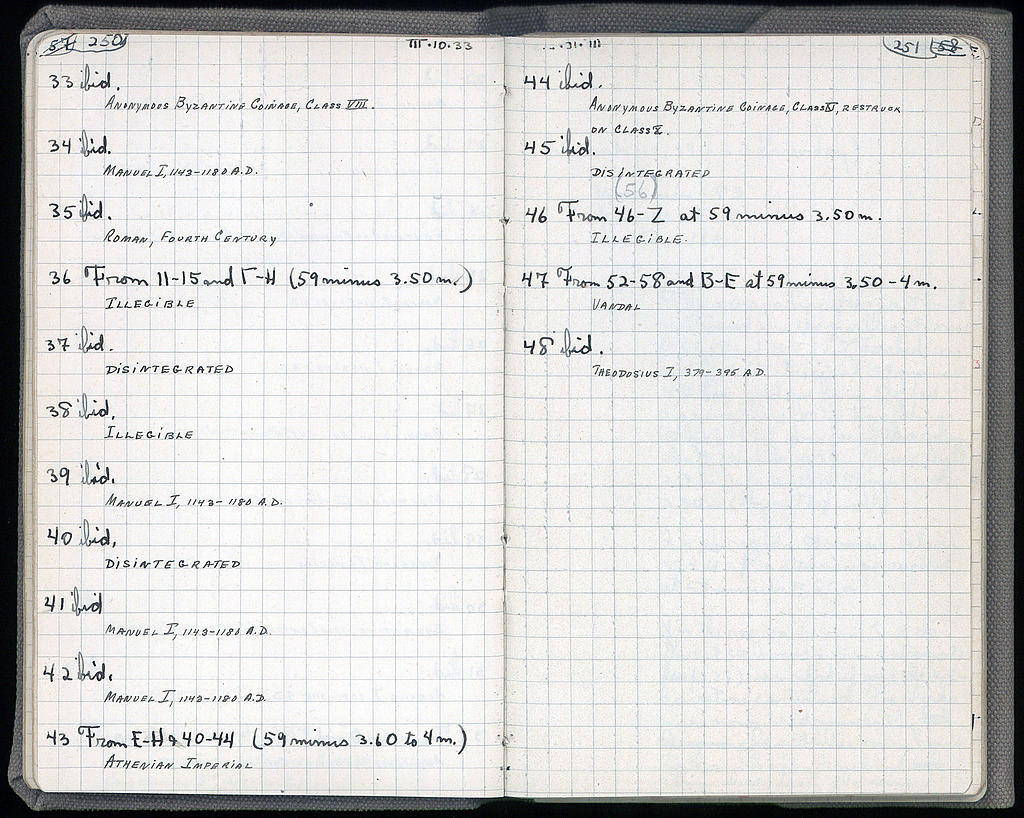 57 250
III·10·33
33 ibid.
Anonymous Byzantine Coinage, Class VIII.
34 ibid.
Manuel I, 1143-1180 A.D.
35 ibid.
Roman, Fourth Century
36 From 11-15 and Γ-H (59 minus 3.50 m.)
Illegible
37 ibid.
Disintegrated
38 ibid.
Illegible
39 ibid.
Manuel I, 1143-1180 A.D.
40 ibid.
Disintegrated
41 ibid
Manuel I, 1143-1180 A.D.
42 ibid.
Manuel I, 1143-1180 A.D.
43 From E-H & 40-44 (59 minus 3.60 to 4 m.)
Athenian Imperial
251 58
44 ibid.
Anonymous Byzantine Coinage, Class, restruck
on Class
45 ibid.
Disintegrated
(56)
46 From 46-Z at 59 minus 3.50 m.
Illegible.
47 From 52-58 and B-E at 59 minus 3.50-4 m.
Vandal
48 ibid.
Theodosius I, 379-395 A.D.